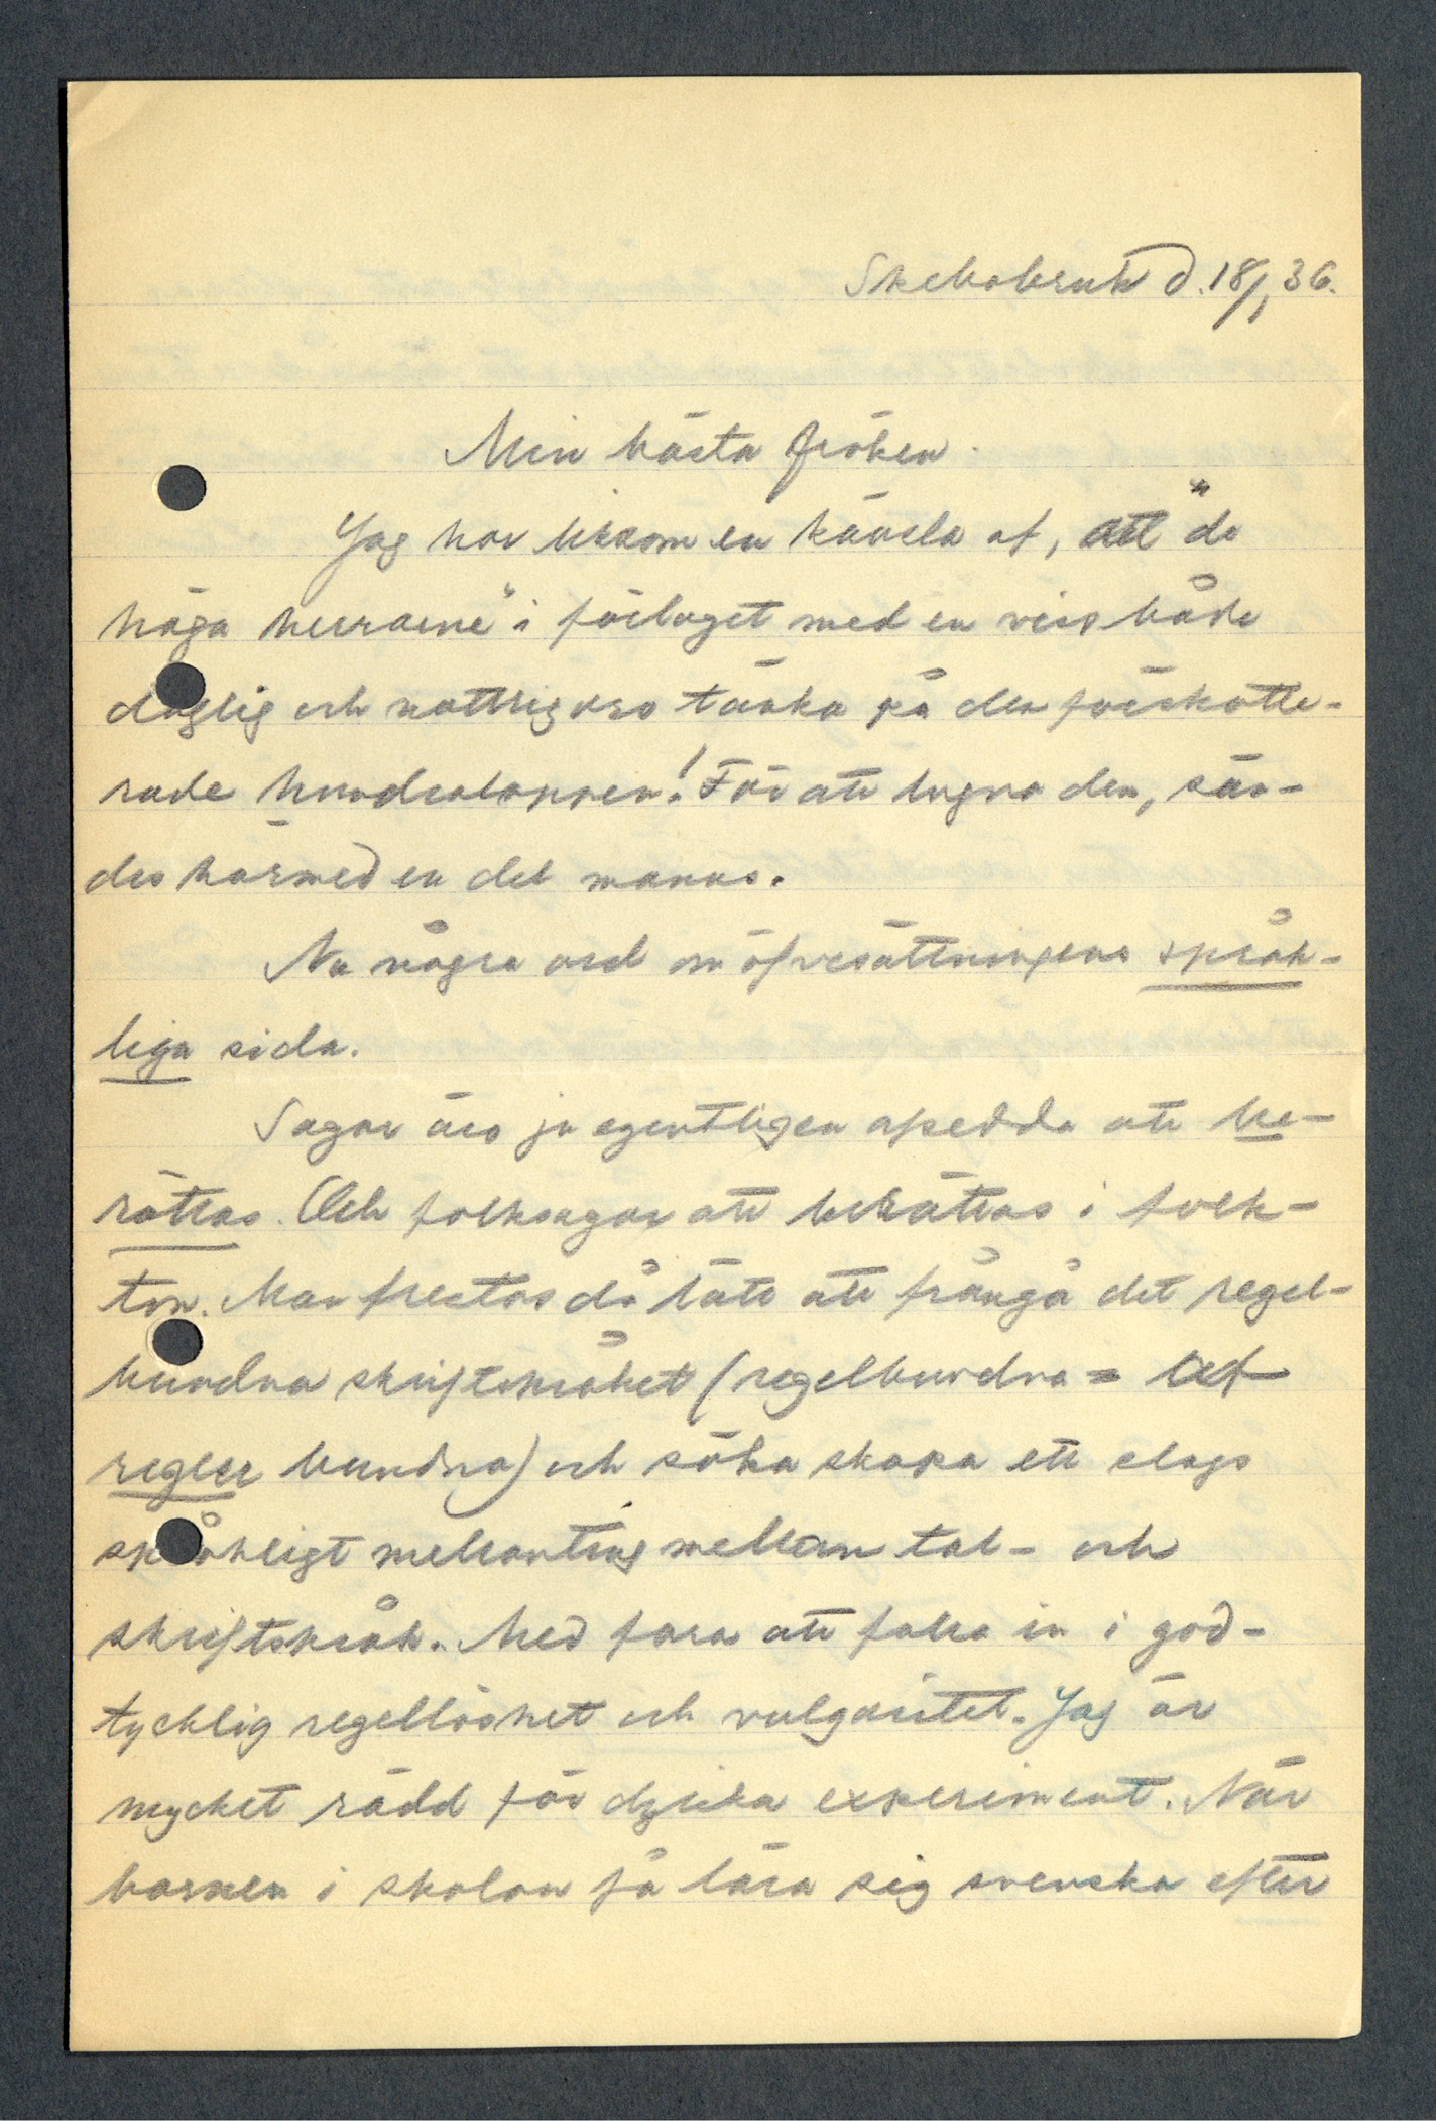 Skebobruk d. 18/1 36.
Min bästa fröken.
Jag har liksom en känsla af, att "de
höga herrarne" i förlaget med en viss både
daglig och nattlig oro tänka på den förskotte-
rade hundralappen! För att lugna den, sän-
des härmed en del manus.
Nu några ord om öfversättningens språk-
liga sida.
Sagor äro ju egentligen afsedda att be-
rättas. Och folksagor att berättas i folk-
ton. Man frestas då lätt att frångå det regel-
bundna skriftspråket (regelbundna = af
regler bundna) och söka skapa ett slags
språkligt mellanting mellan tal- och
skriftspråk. Med fara att falla in i god-
tycklig regellöshet och vulgaritet. Jag är
mycket rädd för dylika experiment. När
barnen i skolan få lära sig svenska efter